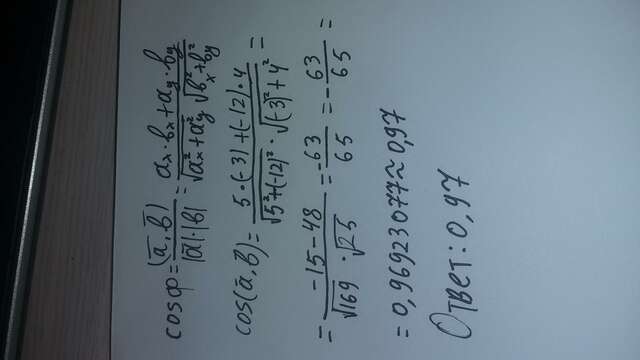 cosφ = (a̅, b̅) / |a̅|·|b̅| = aₓ·bₓ + a_y·b_y / √(aₓ² + a_y²) √(bₓ² + b_y²)
cos(a̅, b̅) = 5·(-3) + (-12)·4 / √(5² + (-12)²) · √((-3)² + 4²) =
= -15 - 48 / √169 · √25 = -63 / 65 = - 63 / 65 =
= 0,96923077 ≈ 0,97
Ответ: 0,97